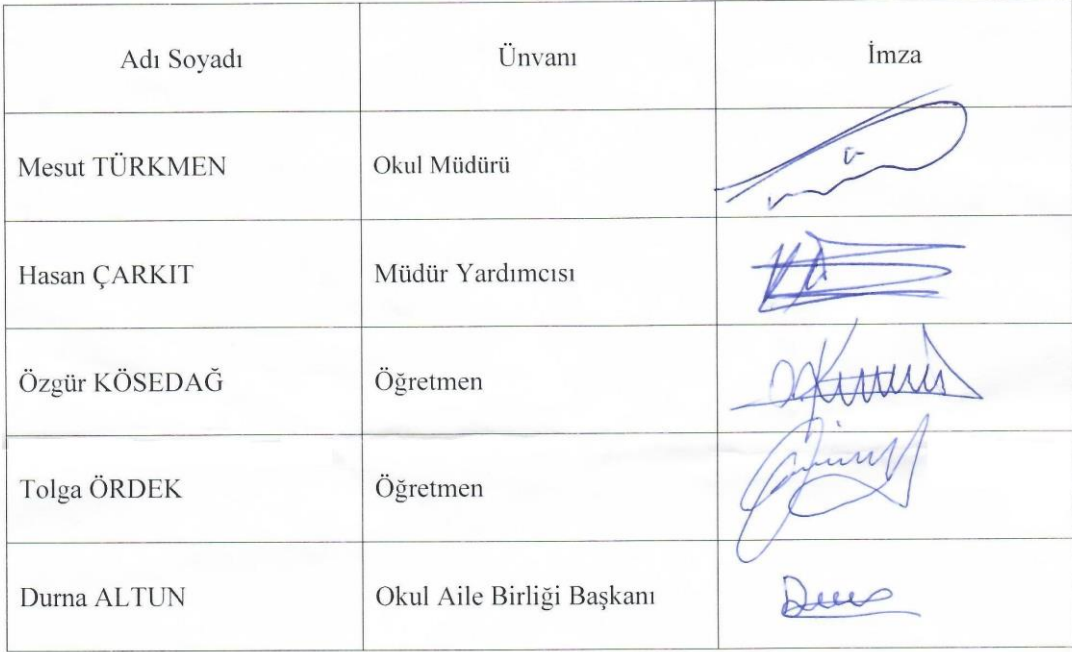 Adı Soyadı Ünvanı İmza
Mesut TÜRKMEN Okul Müdürü
Hasan ÇARKIT Müdür Yardımcısı
Özgür KÖSEDAĞ Öğretmen
Tolga ÖRDEK Öğretmen
Durna ALTUN Okul Aile Birliği Başkanı